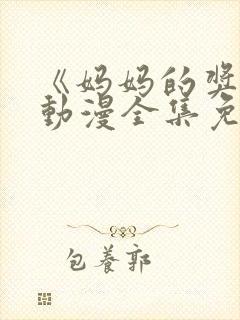 《妈妈的奖
动漫全集免
包養郭